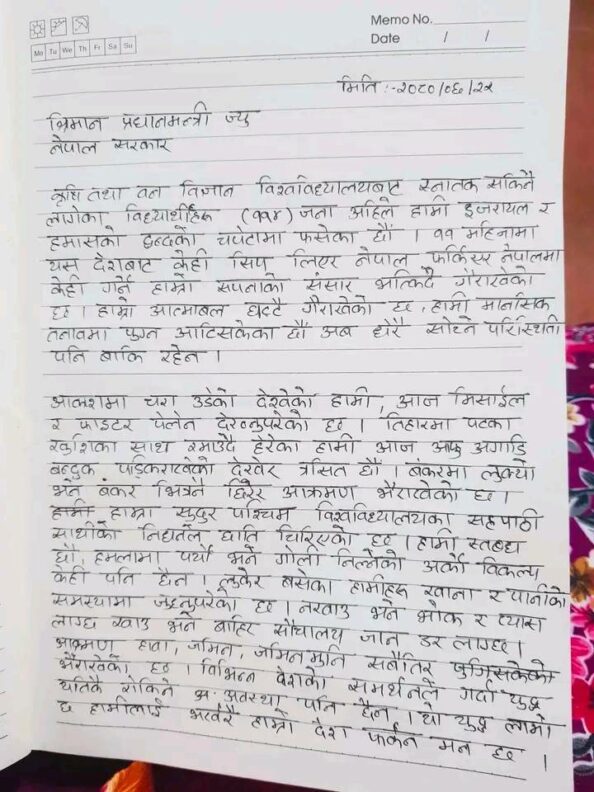 Memo No.
Mo Tu We Th Fr Sa Su
Date / /
मिति :- २०८०/०६/२४
श्रिमान प्रधानमन्त्री ज्यु
नेपाल सरकार
कृषि तथा वन विज्ञान विश्वविद्यालयबाट स्नातक सकिनै
लागेका विद्यार्थीहरू (११४) जना अहिले हामी इजरायल र
हमासको द्वन्दको चपेटामा फसेका छौं । ११ महिनामा
यस देशबाट केही सिप लिएर नेपाल फर्किएर नेपालमा
केही गर्ने हाम्रो सपनाको संसार भत्किदै गैराखेको
छ । हाम्रो आत्मबल घट्दै गैराखेको छ , हामी मानसिक
तनावमा पुग्न आटिसकेका छौं अब धेरै सोच्ने परिस्थिती
पनि बाकि रहेन ।
आकाशमा चरा उडेको देखेका हामी , आज मिसाईल
र फाइटर प्लेन देख्नुपरेको छ । तिहारमा पटका
खुशिका साथ रमाउदै हेरेका हामी आज आफु अगाडि
बन्दुक पड्किराखेको देखेर त्रसित छौं । बंकरमा लुक्यो
भने बंकर भित्रनै छिरेर आक्रमण भैराखेको छ ।
हाम्रा सुदुर पश्चिम विश्वविद्यालयका सहपाठी
साथीको निधनले छाति चिरिएको छ । हामी स्तब्ध
छौं , हमलामा पर्यो भने गोली निल्नेको अर्को विकल्प
केही पनि छैन । लुकेर बसेका हामीहरू खाना र पानीको
समस्यामा जुध्नुपरेको छ । नखाउ भने भोक र प्यास
लाग्छ खाउ भने बाहिर सौचालय जान डर लाग्छ ।
आक्रमण हावा , जमिन , जमिनमुनि सबैतिर पुगिसकेको
भैराखेको छ । विभिन्न देशको समर्थनले गर्दा युद्ध
यतिकै रोकिने अवस्था पनि छैन । यो युद्ध लामो
छ हामीलाई भरखरै हाम्रो देश फर्कन मन छ ।